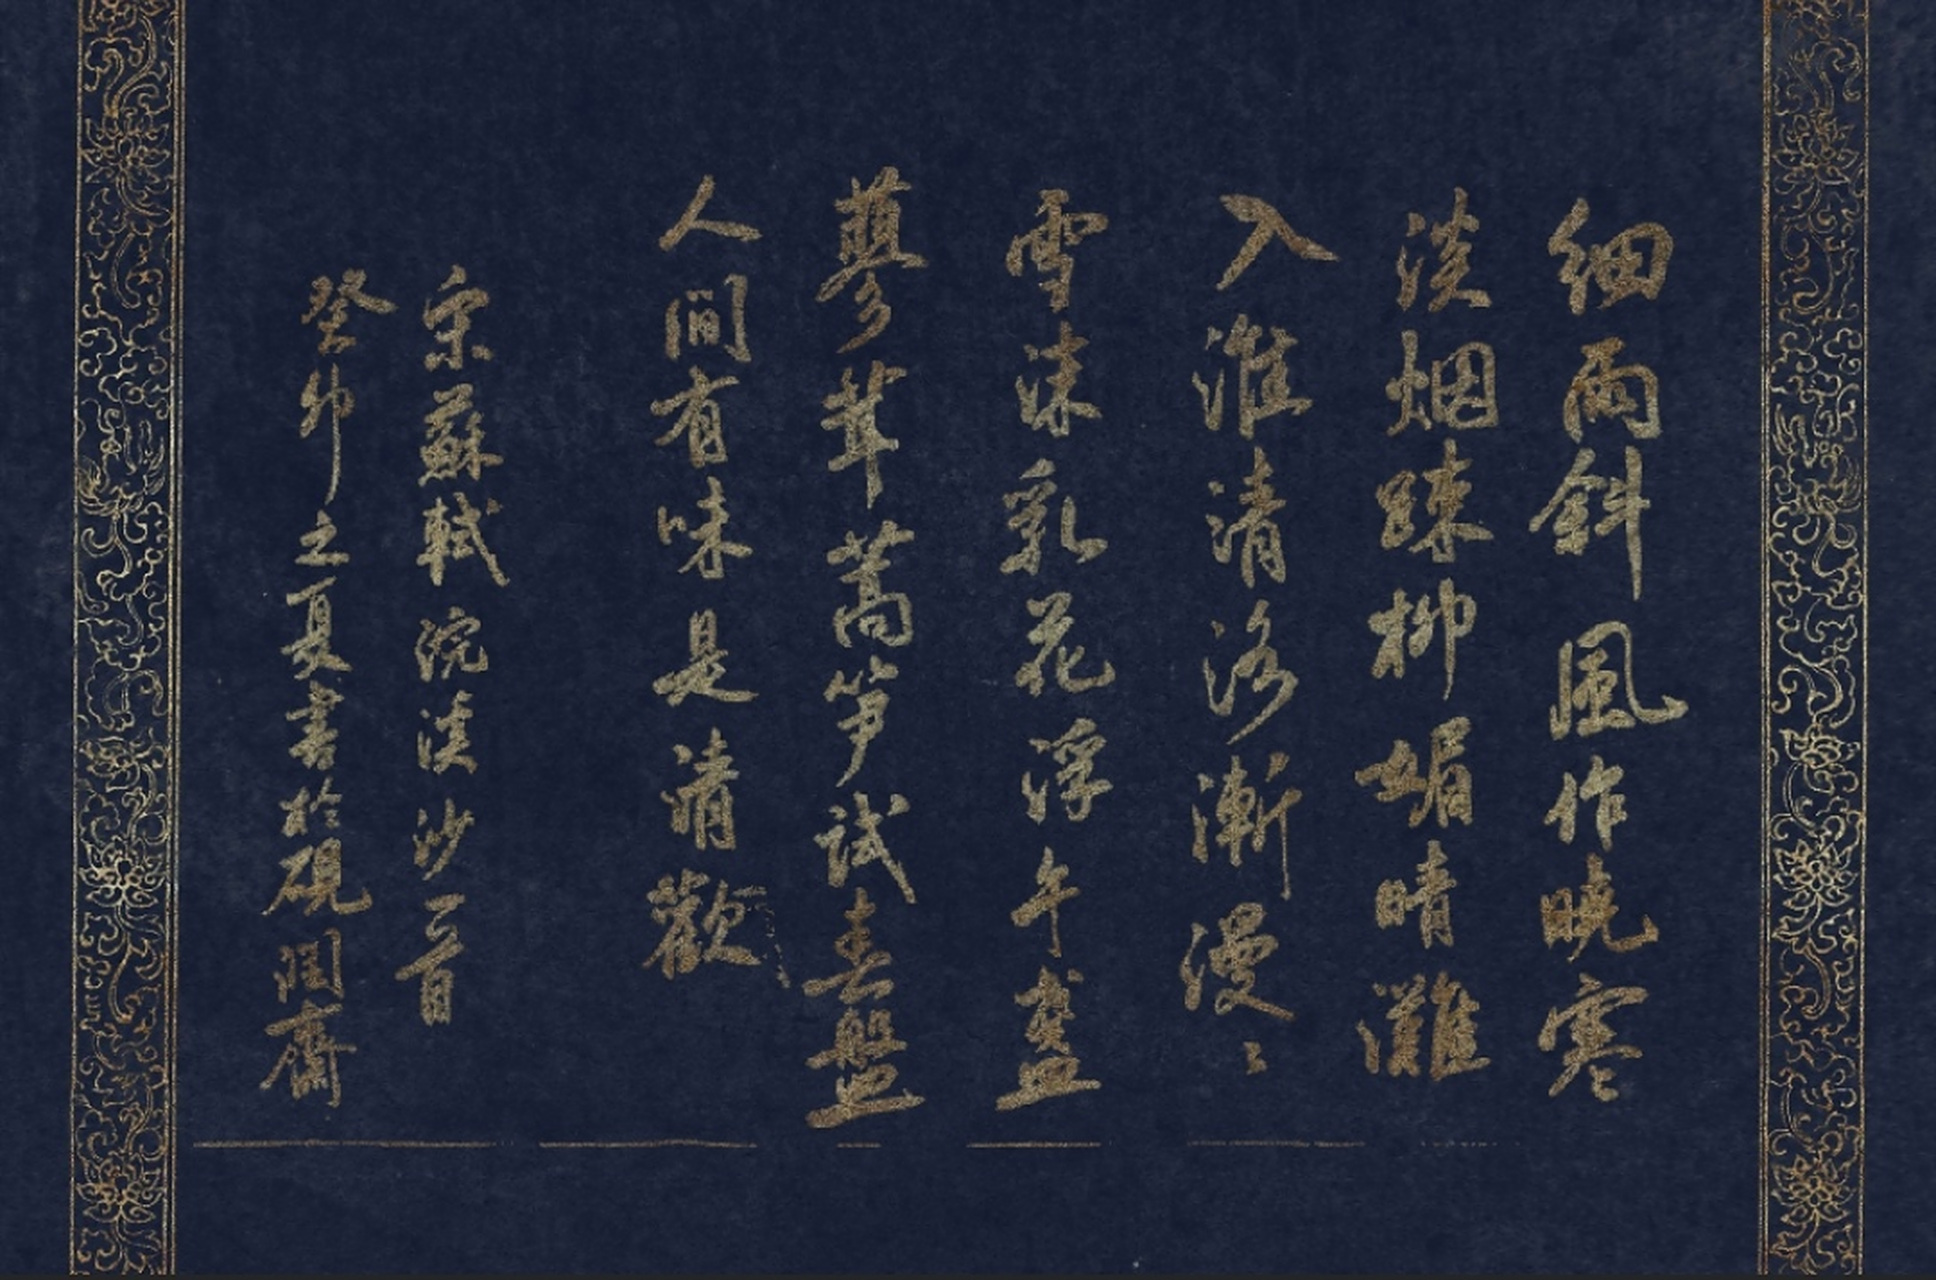 細雨斜風作曉寒
淡烟疎柳媚晴灘
入淮清洛漸漫〻
雪沫乳花浮午盞
蓼茸蒿笋試春盤
人間有味是清歡
宋蘇軾浣溪沙一首
癸卯之夏書於硯齋